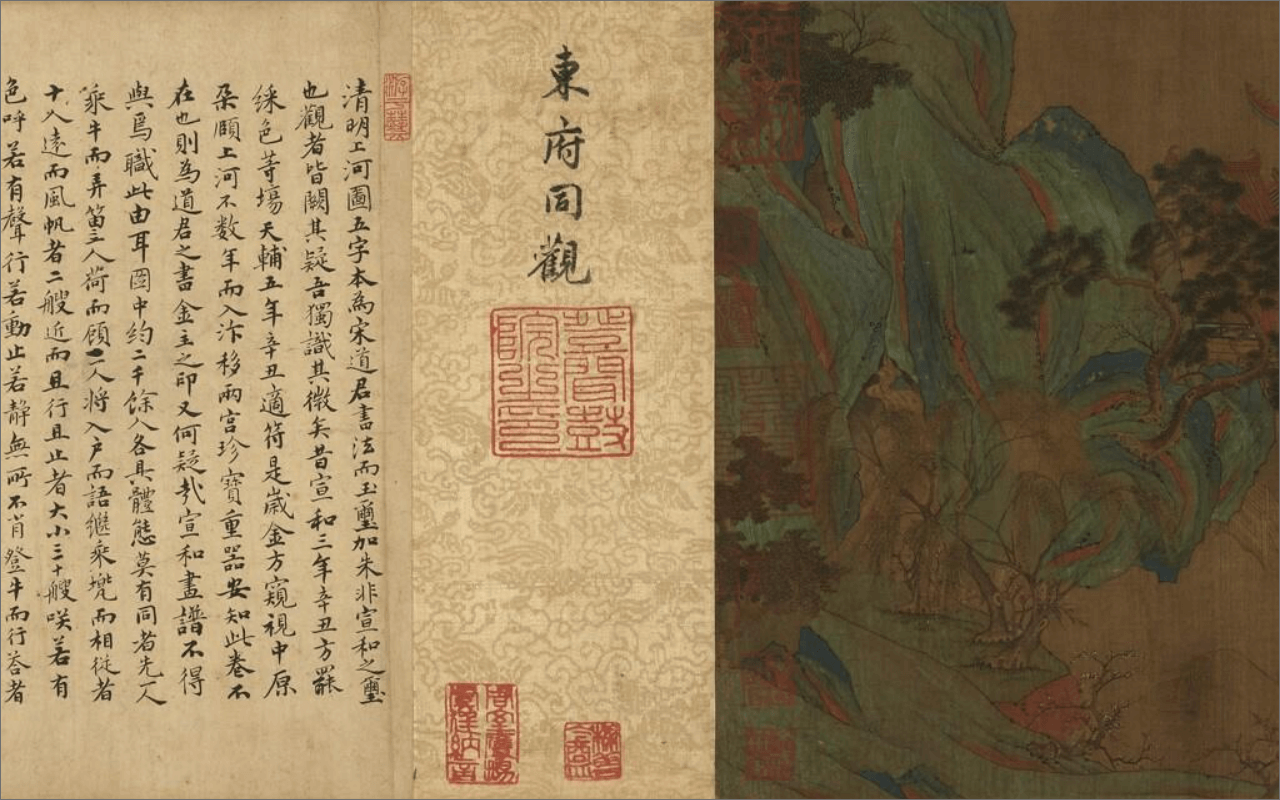 東府同觀
清明上河圖五字本為宋道君書法而玉璽加朱非宣和之璽
也觀者皆闕其疑吾獨識其微矣昔宣和三年辛丑方罷
綵色等場天輔五年辛丑適符是嵗金方窺視中原
朶頤上河不数年而入汴移兩宮珍寶重器安知此卷不
在也則為道君之書金主之印又何疑哉宣和畫譜不得
與焉職此由耳圖中約二千餘人各具體態莫有同者先一人
乘牛而弄笛三人荷而顧二人將入户而語繼乘而相從者
十人遠而風帆者二艘近而且行且止者大小三十艘咲若有
色呼若有聲行若動止若靜無所不肖登牛而行荅者